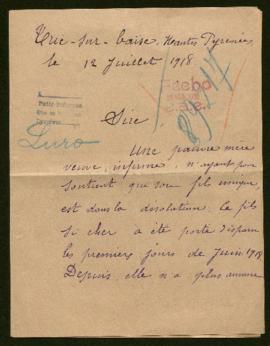 Trie-sur-Baïse, Hautes Pyrénées
le 12 Juillet 1918
Luro
Sire,
Une pauvre mère
veuve, infirme, n'ayant pour
soutient que son fils unique,
est dans la désolation. Ce fils
si cher a été porté disparu
les premiers jours de Juin 1918
Depuis, elle n'a plus aucune